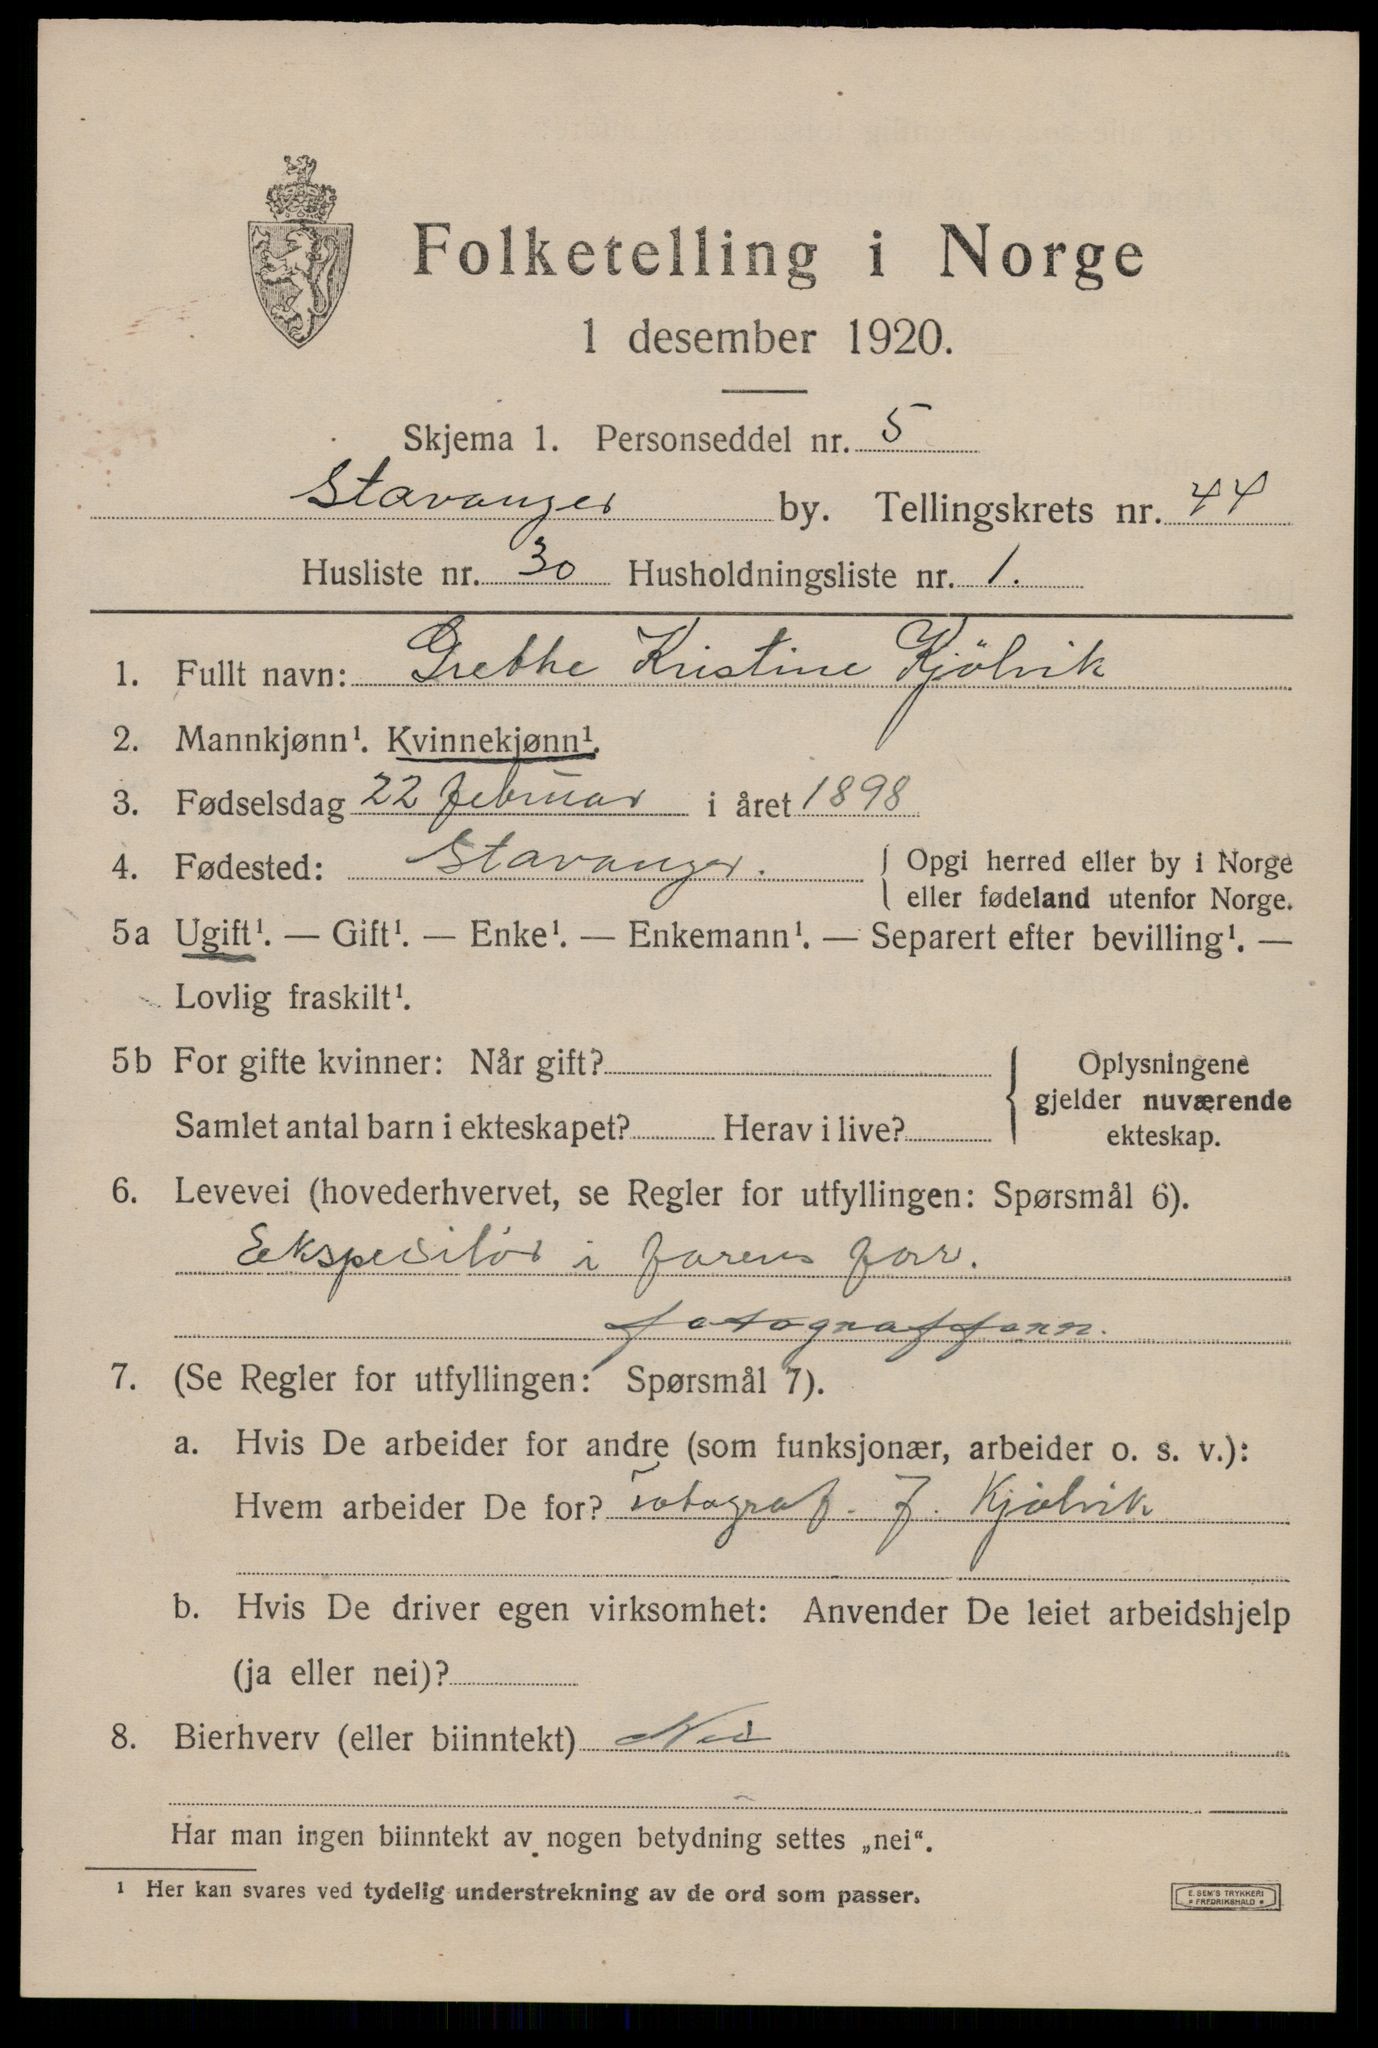 Folketelling i Norge
1 desember 1920.
Skjema 1. Personseddel nr. 5
Stavanger by. Tellingskrets nr. 44
Husliste nr. 30 Husholdningsliste nr. 1.
1. Fullt navn: Grethe Kristine Kjölvik
2. Mannkjønn¹. Kvinnekjønn¹.
3. Fødselsdag 22 februar i året 1898
4. Fødested: Stavanger. { Opgi herred eller by i Norge
eller fødeland utenfor Norge.
5a Ugift¹. — Gift¹. — Enke¹. — Enkemann¹. — Separert efter bevilling¹. —
Lovlig fraskilt¹.
5b For gifte kvinner: Når gift?
Samlet antal barn i ekteskapet? Herav i live?
{ Oplysningene
gjelder nuværende
ekteskap.
6. Levevei (hovederhvervet, se Regler for utfyllingen: Spørsmål 6).
Ekspeditør i farens forr.
fotografforr.
7. (Se Regler for utfyllingen: Spørsmål 7).
a. Hvis De arbeider for andre (som funksjonær, arbeider o. s. v.):
Hvem arbeider De for? Fotograf. J. Kjølvik
b. Hvis De driver egen virksomhet: Anvender De leiet arbeidshjelp
(ja eller nei)?
8. Bierhverv (eller biinntekt) Nei
Har man ingen biinntekt av nogen betydning settes „nei“.
¹ Her kan svares ved tydelig understrekning av de ord som passer.
E. SEM'S TRYKKERI
* FREDRIKSHALD *